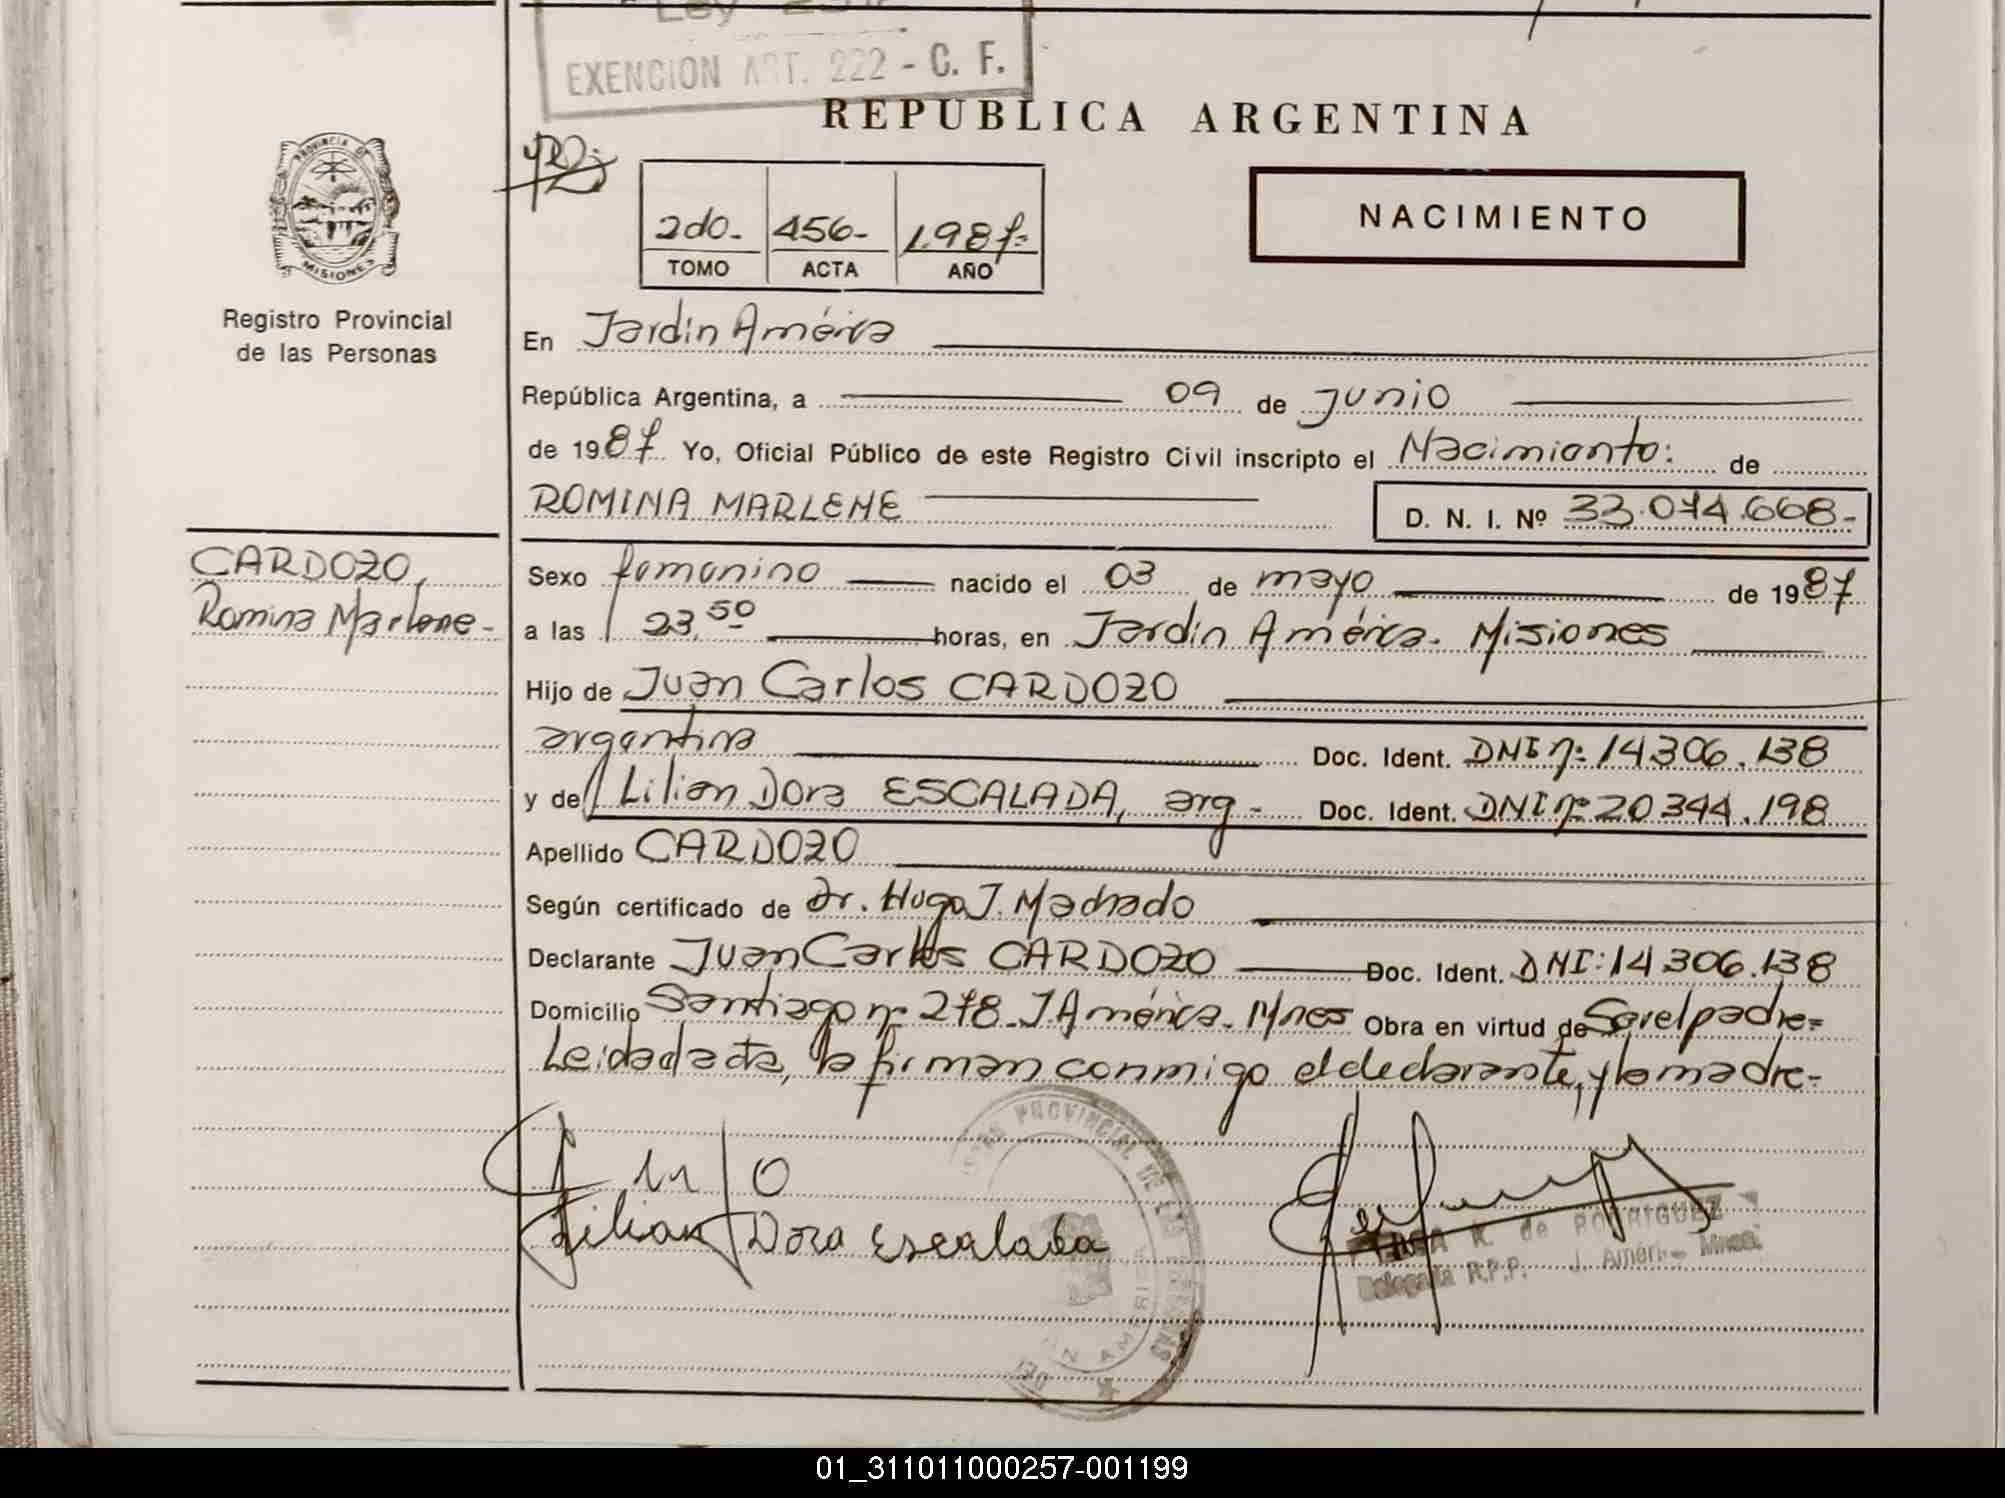 Ley
EXENCION ART. 222 - C. F.
REPUBLICA ARGENTINA
PROVINCIA DE
MISIONES
Registro Provincial
de las Personas
2do- 456- 1.987=
TOMO ACTA AÑO
NACIMIENTO
En Jardín América
República Argentina, a 09 de junio
de 1987 Yo, Oficial Público de este Registro Civil inscripto el Nacimiento: de
ROMINA MARLENE D. N. I. Nº 33.074.668-
CARDOZO,
Romina Marlene-
Sexo femenino nacido el 03 de mayo de 1987
a las 23,50 horas, en Jardín América. Misiones
Hijo de Juan Carlos CARDOZO
argentina Doc. Ident. DNI nº 14306.138
y de Lilian Dora ESCALADA, arg- Doc. Ident. DNI nº 20344.198
Apellido CARDOZO
Según certificado de Dr. Hugo J. Machado
Declarante Juan Carlos CARDOZO Doc. Ident. DNI: 14306.138
Domicilio Santiago nº 278. J. América. Mnes Obra en virtud de Ser el padre=
Leida el acta, la firman conmigo el declarante, y la madre-
Lilian Dora Escalada
PROVINCIAL DE LAS PERSONAS
AMERICA
K. de RODRIGUEZ
Delegada R.P.P. J. América Mnes.
01_311011000257-001199